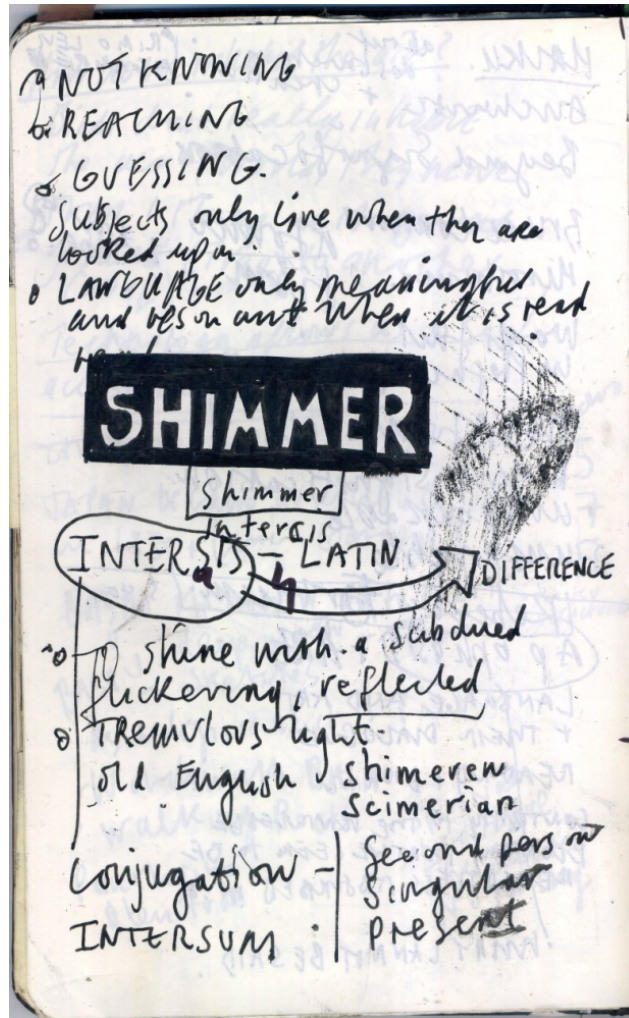 NOT KNOWING
REACHING
GUESSING.
Subjects only live when they are
looked upon.
LANGUAGE only meaningful
and resonant when it is read
SHIMMER
shimmer
interes
INTERSIS – LATIN
DIFFERENCE
TO shine with a subdued
flickering, reflected
TREMULOUS light.
old English shimeren
scimerian
Conjugation – second person
singular
INTERSUM present